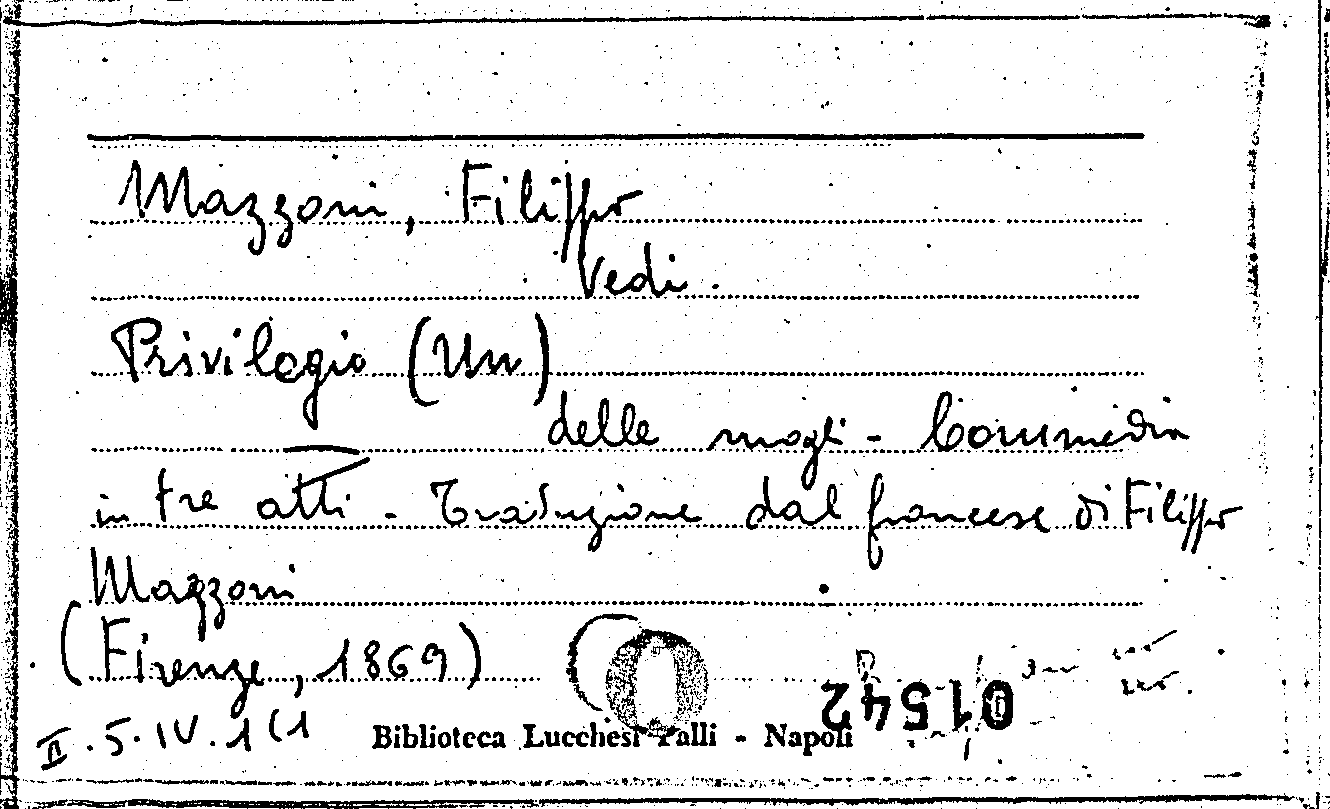 Mazzoni, Filippo
Vedi.
Privilegio (Un)
delle mogli - Commedia
in tre atti - Traduzione dal francese di Filippo
Mazzoni
(Firenze, 1869)
01542
Biblioteca Lucchesi Palli - Napoli